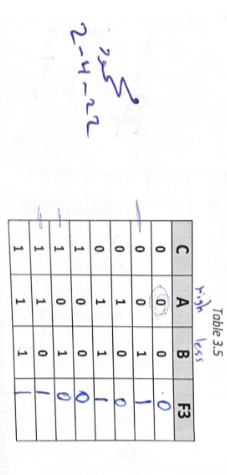 Table 3.5
high less
C A B F3
0 0 0 0
0 0 1 1
0 1 0 0
0 1 1 1
1 0 0 0
1 0 1 0
1 1 0 1
1 1 1 1
2-4-22